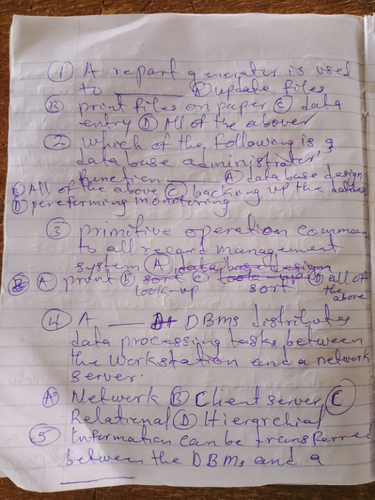 ① A report generator is used
to ______ Ⓐ update files
Ⓑ print files on paper Ⓒ data
entry Ⓓ All of the above
② which of the following is a
data base administrator's
function ______ Ⓐ data base design
Ⓑ All of the above Ⓒ backing up the
Ⓓ pereferming monitoring
③ primitive operation common
to all record management
system Ⓐ data base design
Ⓐ print Ⓑ sort Ⓒ look-up Ⓓ all of
look-up sort the above
④ A ______ DBMS distributes
data processing tasks between
the workstation and a network
server.
Ⓐ Network Ⓑ Client server Ⓒ
Relational Ⓓ Hierarchial
⑤ Information can be transferred
between the DBMs and a
______